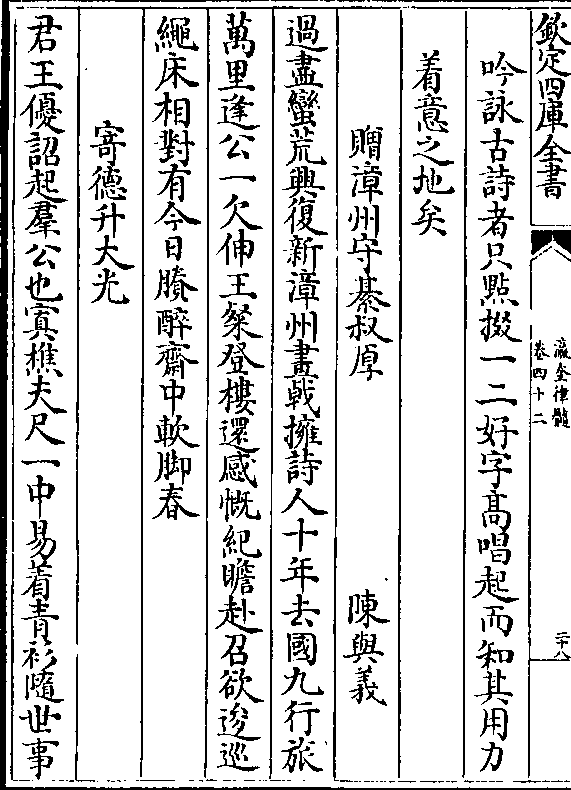 欽定四庫全書
瀛奎律髓
卷四十二
二十八
吟詠古詩者只點掇一二好字髙唱起而知其用力
着意之地矣
贈漳州守綦叔厚 陳與義
過盡蠻荒興復新漳州畫㦸擁詩人十年去國九行旅
萬里逢公一欠伸王粲登樓還感慨紀瞻赴召欲逡巡
繩床相對有今日賸醉齋中軟脚春
寄德升大光
君王優詔起羣公也寘樵夫尺一中易着青衫隨世事